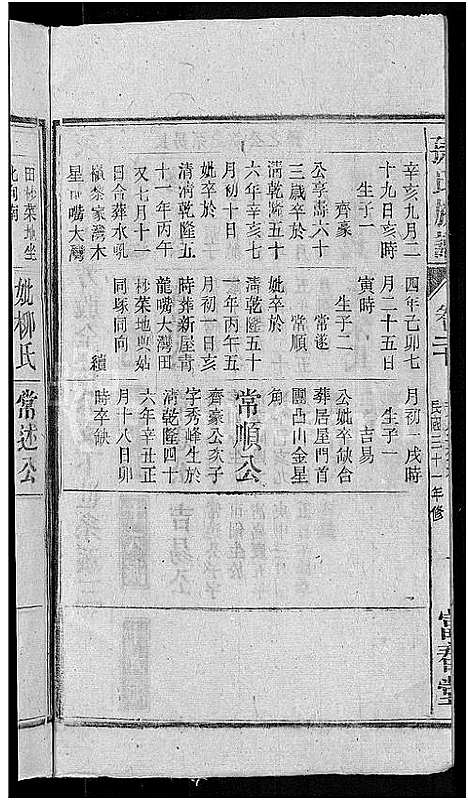 孫氏族譜
卷二十
民國三十一年修
富春堂
辛亥九月二
十九日亥時
生子一
齊豪
公享壽六十
三歲卒於
清乾隆五十
六年辛亥七
月初十日
妣卒於
清乾隆五
十一年丙午
又七月十一
日合葬水吼
嶺黎家灣木
星咀嘴大灣
四年己卯七
月二十五日
寅時
生子二
常遂
常順
妣卒於
清乾隆五十
一年丙午五
月初一日亥
時葬新屋青
龍嘴大灣田
杪菜地與姑
同塚同向
續
月初一戌時
生子一
吉易
公妣卒缺合
葬居屋門首
團凸山金星
常順公
齊豪公次子
字秀峰生於
清乾隆四十
六年辛丑正
月十八日卯
時卒缺
田杪菜地坐
北向南
妣柳氏
常述公